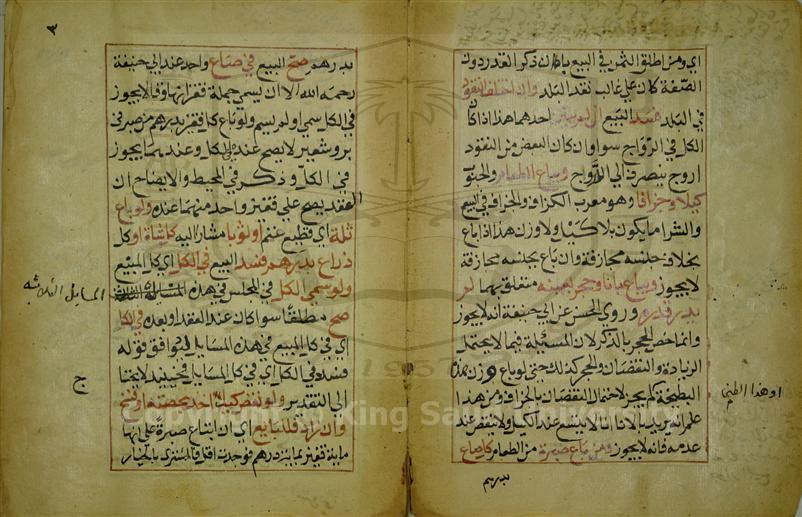 اي ومن اطلق الثمن في البيع بان ذكر القدر دون
الصفة كان علي غالب نقد البلد وان اختلف النقود
في البلد فسد البيع ان لم يبين احدهما هذا اذا كا
الكل في الرواج سوا وان كان البعض من النقود
اروج ينصرف الي الاروج ويباع الطعام والحبوب
كيلا وجزافا وهو معرب الكزاف والجزاف في البيع
والشرا ما يكون بلا كيل ولا وزن هذا اذا باع
بخلاف جنسه مجازفة وان باع بجنسه مجازفة
لا يجوز ويباع باناء وحجر بعينه متعلق بهما لم
يدر قدره وروي الحسن عن ابي حنيفة انه لا يجوز
وانما خص الحجر بالذكر لان المسئلة فيما لا يحتمل
الزيادة والنقصان والحجر كذلك حتي لو باع وزن هذه
البطيخة لم يجز لاحتمال النقصان بالجزاف ومن هذا
علم انه يريد بالاناء ما لا يتسع عند الكيل ولا ينقص عند
عدمه فانه لا يجوز ومن باع صبرة من الطعام كل صاع
بدرهم
او هذا الطين
٣
بدرهم صح البيع في صاع واحد عند ابي حنيفة
رحمه الله الا ان يسمي جملة قفزانها وقالا يجوز
في الكل سمي او لم يسم ولو باع كل قفيز بدرهم من صبرتي
بر وشعير لا يصح عنده في الكل وعندهما يجوز
في الكل وذكر في المحيط والايضاح ان
العقد يصح علي قفيز واحد منهما عنده ولو باع
ثلة اي قطيع غنم او ثوبا مشارا اليه كل شاة او كل
ذراع بدرهم فسد البيع في الكل اي كل المبيع
ولو سمي الكل في المجلس في هذه
المسايل الثلاثه
صح مطلقا سوا كان عند العقد او بعده في الكل
اي في كل المبيع في هذه المسايل ليوافق قوله
فسد في الكل اي في كل المسايل فحينئذ لا يحتا
ج
الي التقدير ولو نقص كيل اخذ بحصته او فسخ
وان زاد فللبايع اي ان ابتاع صبرة علي انها
ماية قفيز بماية درهم فوجدت اقل فالمشتري بالخيار